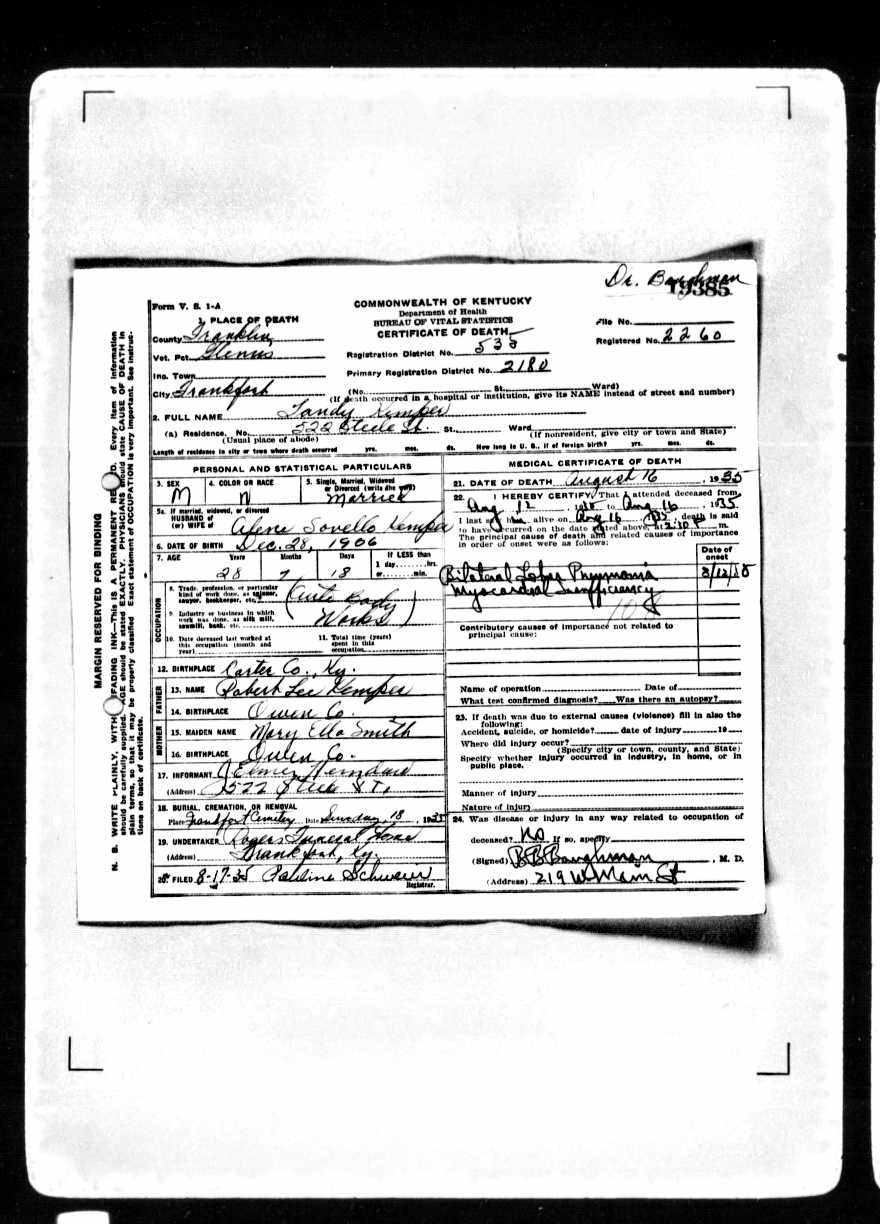 Dr. Baughman
19385
Form V. S. 1-A
COMMONWEALTH OF KENTUCKY
Department of Health
BUREAU OF VITAL STATISTICS
CERTIFICATE OF DEATH
1. PLACE OF DEATH
County Franklin
Vot. Pct. Glenns
Inc. Town
City Frankfort
Registration District No. 535
Primary Registration District No. 2180
File No.
Registered No. 2260
(No. St. Ward)
(If death occurred in a hospital or institution, give its NAME instead of street and number)
2. FULL NAME Tandy Kemper
(a) Residence, No. 522 Steele St. St., Ward
(Usual place of abode) (If nonresident, give city or town and State)
Length of residence in city or town where death occurred yrs. mos. ds. How long in U. S., if of foreign birth? yrs. mos. ds.
PERSONAL AND STATISTICAL PARTICULARS
3. SEX M
4. COLOR OR RACE
5. Single, Married, Widowed or Divorced (write the word) Married
5a. If married, widowed, or divorced
HUSBAND of
(or) WIFE of Alene Sovello Kemper
6. DATE OF BIRTH Dec. 28, 1906
7. AGE Years 28 Months 7 Days 18 If LESS than 1 day hrs. or min.
OCCUPATION
8. Trade, profession, or particular kind of work done, as spinner, sawyer, bookkeeper, etc. (Auto Body
9. Industry or business in which work was done, as silk mill, sawmill, bank, etc. Works)
10. Date deceased last worked at this occupation (month and year)
11. Total time (years) spent in this occupation
12. BIRTHPLACE Carter Co., Ky.
FATHER
13. NAME Robert Lee Kemper
14. BIRTHPLACE Owen Co.
MOTHER
15. MAIDEN NAME Mary Ella Smith
16. BIRTHPLACE Owen Co.
17. INFORMANT Elmer Herndon
(Address) 522 Steele St.
18. BURIAL, CREMATION, OR REMOVAL
Place Frankfort Cemetery Date Sunday, 18, 1935
19. UNDERTAKER Rogers Funeral Home
(Address) Frankfort, Ky.
20. FILED 8-17-35 Registrar.
MEDICAL CERTIFICATE OF DEATH
21. DATE OF DEATH August 16, 1935
22. I HEREBY CERTIFY, That I attended deceased from
Aug. 12, 1935 to Aug 16, 1935
I last saw him alive on Aug 16 1935, death is said
to have occurred on the date stated above, at 2:30 P. m.
The principal cause of death and related causes of importance
in order of onset were as follows:
Date of onset
Bilateral Lobar Pneumonia 8/12/35
Myocardial Insufficiency
108
Contributory causes of importance not related to
principal cause:
Name of operation Date of
What test confirmed diagnosis? Was there an autopsy?
23. If death was due to external causes (violence) fill in also the
following:
Accident, suicide, or homicide? date of injury 19
Where did injury occur?
(Specify city or town, county, and State)
Specify whether injury occurred in industry, in home, or in
public place.
Manner of injury
Nature of injury
24. Was disease or injury in any way related to occupation of
deceased? No If so, specify
(Signed) B B Baughman, M. D.
(Address) 219 W Main St
MARGIN RESERVED FOR BINDING
N. B. WRITE PLAINLY, WITH UNFADING INK—This IS A PERMANENT RECORD. Every item of information
should be carefully supplied. AGE should be stated EXACTLY. PHYSICIANS should state CAUSE OF DEATH in
plain terms, so that it may be properly classified. Exact statement of OCCUPATION is very important. See instruc-
tions on back of certificate.